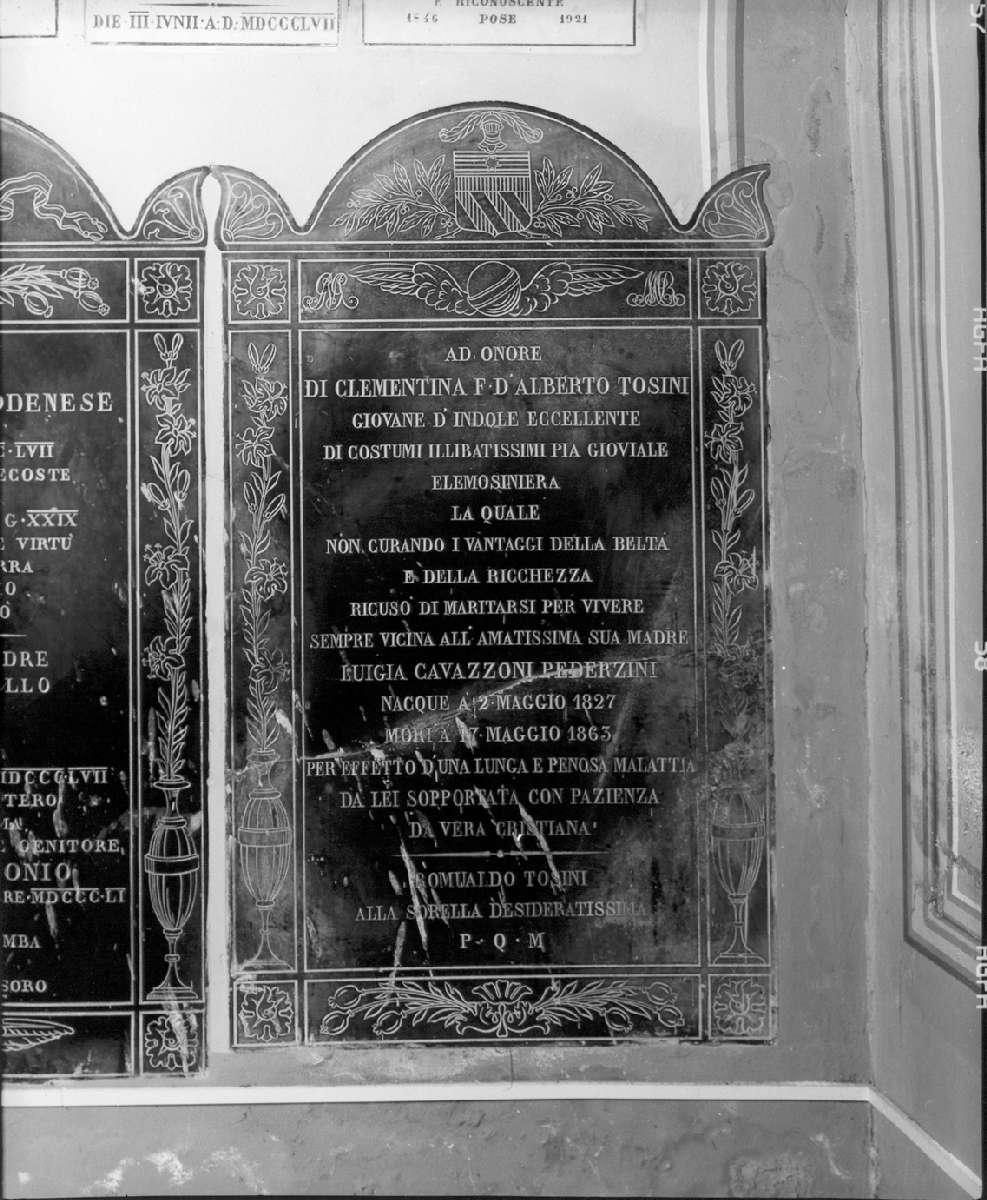 DIE III IVNII·A·D·MDCCCLVII
E RICONOSCENTE
1846 POSE 1921
DENESE
LVII
ECOSTE
G·XXIX
VIRTÙ
DRE
LLO
MDCCCLVII
TERO
GENITORE
ONIO
RE·MDCCC·LI
MBA
SORO
AD ONORE
DI CLEMENTINA F·D'ALBERTO TOSINI
GIOVANE D'INDOLE ECCELLENTE
DI COSTUMI ILLIBATISSIMI PIA GIOVIALE
ELEMOSINIERA
LA QUALE
NON CURANDO I VANTAGGI DELLA BELTÀ
E DELLA RICCHEZZA
RICUSÒ DI MARITARSI PER VIVERE
SEMPRE VICINA ALL'AMATISSIMA SUA MADRE
LUIGIA CAVAZZONI PEDERZINI
NACQUE A 2·MAGGIO 1827
MORÌ A 17·MAGGIO 1863
PER EFFETTO D'UNA LUNGA E PENOSA MALATTIA
DA LEI SOPPORTATA CON PAZIENZA
DA VERA CRISTIANA
ROMUALDO TOSINI
ALLA SORELLA DESIDERATISSIMA
P·Q·M
57
AGFA
58
AGFA